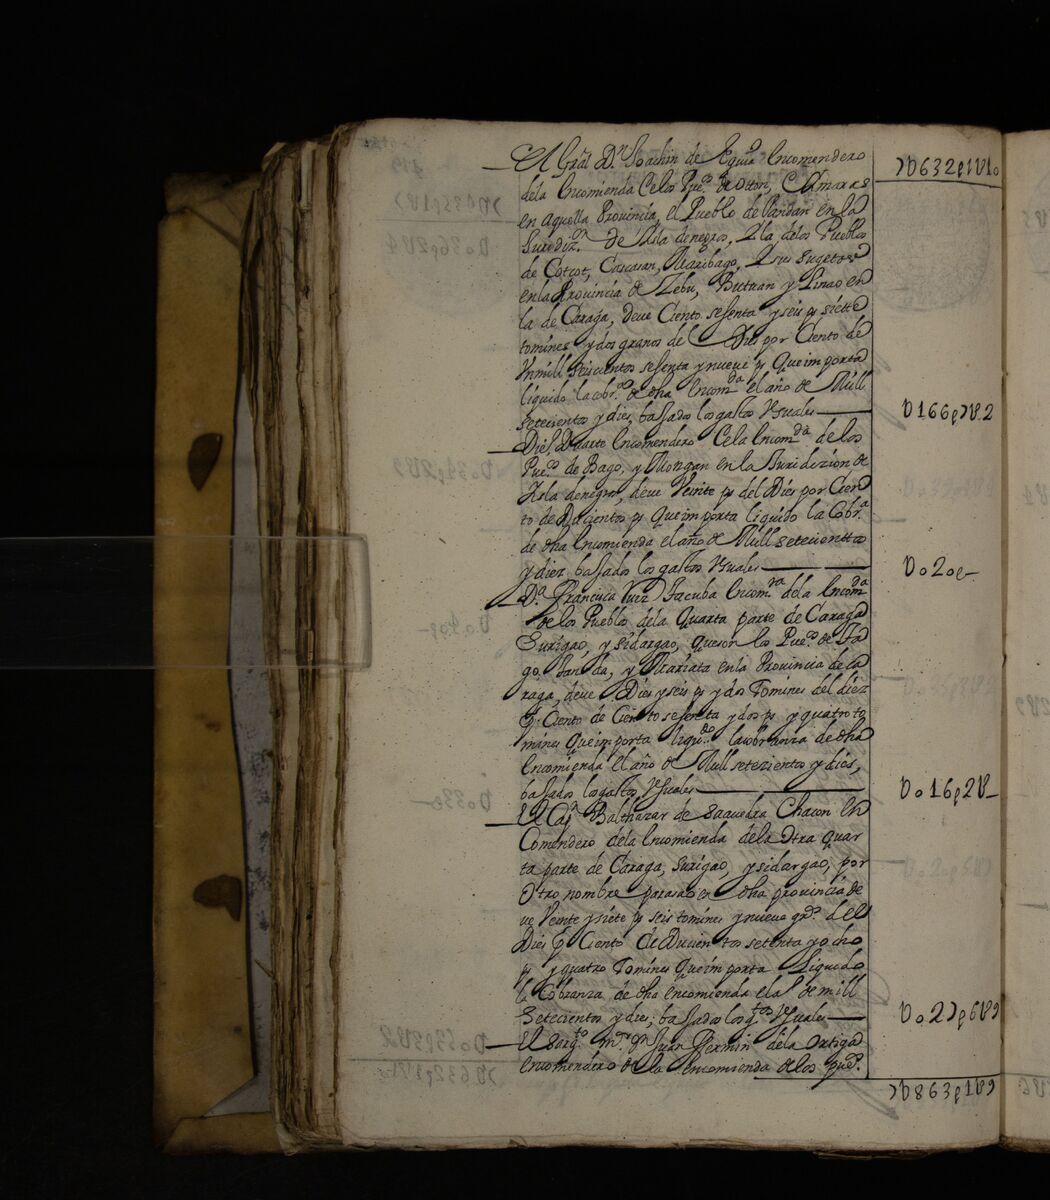 )U632p1U10
El Grãl Dn Joachin de Eguia Encomendero
dela Encomienda de los Pues. de Otton, Camaras
en aquella Provincia, el Pueblo de Candan en la
Juredizn. de Isla de negros, Y la delos Pueblos
de Cotcot, Cascasan, Maribago, Y sus sugetos
en la Provincia de Zebu, Butuan y Linao en
la de Caraga, deve Ciento sesenta y seis ps siette
tomines y dos granos del Dies por Ciento de
Un mill seiscientos sesenta y nueve ps Que importa
liquido la cobrª de dha Encomda el año de Mill
setecientos y dies, baSados los gastos Usuales
U166p)U.2
Diego Duarte Encomendero de la Encomda. de los
Pues. de Bago, y Mongan en la Juridizion de
Isla de negros, deve Veinte ps del Dies por Cien
to de Ducientos ps Que importa liquido la Cobrª
de dha Encomienda el año de Mill setecienttos
y diez baSados los gastos Usuales
Uo2oe
Dª. Francisca Ruiz Jacuba Encomra dela Encomda
de los Pueblos dela Quarta parte de Caraga
Surigao, y Sidargao, que son los Pues. de
go. y en la Provincia de Ca
raga, deve Dies y seis ps y dos Tomines del diez
p. Ciento de Ciento sesenta y dos ps y quatro to
mines Que importa liqudo. la cobranza de dha
Encomienda el año de Mill setezientos y dies,
baSados los gastos Usuales
Uo16p2U
El Capn Balthazar de Saauedra Chacon En
Comendero dela Encomienda dela Otra Quar
ta parte de Caraga, Surigao, y Sidargao, por
Otro nombre parasao en dha provincia de
ve Veinte y siete ps seis tomines y nueve gros. del
Dies p. Ciento de Ducientos setenta y ocho
ps y quatro Tomines Que importa Liquido
la Cobranza de dha encomienda el aº de mill
Setecientos y dies; baSados los gtos Usuales
Uo2)p6U9
El Sargto mor Dn Juan Fermin dela Ortiga
encomendero de la encomienda de los pues.
)U863p1U9